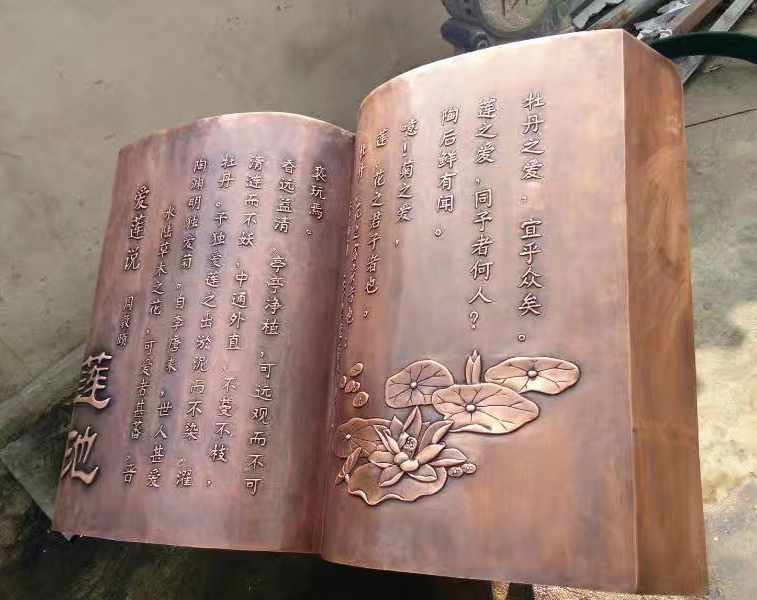 莲池
爱莲说 周敦颐
水陆草木之花,可爱者甚蕃。晋
陶渊明独爱菊。自李唐来,世人甚爱
牡丹。予独爱莲之出淤泥而不染,濯
清涟而不妖,中通外直,不蔓不枝,
香远益清,亭亭净植,可远观而不可
亵玩焉。
牡丹,花之富贵者也
莲,花之君子者也,
噫!菊之爱,
陶后鲜有闻。
莲之爱,同予者何人?
牡丹之爱,宜乎众矣。